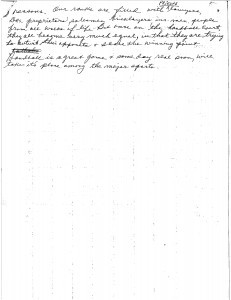 reasons. Our ranks are filled with lawyers,
Bar proprietors, salesmen, bricklayers in-nar people
from all walks of life. But once on the handball court,
they all become very much equal, in that they are trying
to outwit their opponents & score the winning point.
Handball is a great game, & some day real soon, will
take its place among the major sports.